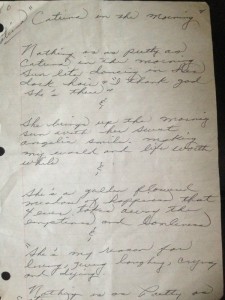 Catrina in the Morning
Nothing is as pretty as
Catrina in the morning
Sun lite dancing in Her
dark hair & I thank god
She's there"
&
She brings up the morning
sun with her sweet
angelic smile. making
my world and life worth
while
&
She's a golden flowered
meadow of happiness that
taken away the
emptiness and
&
"She's my reason for
living, giving, laughing, crying
and dying.
Nothing is as Pretty as